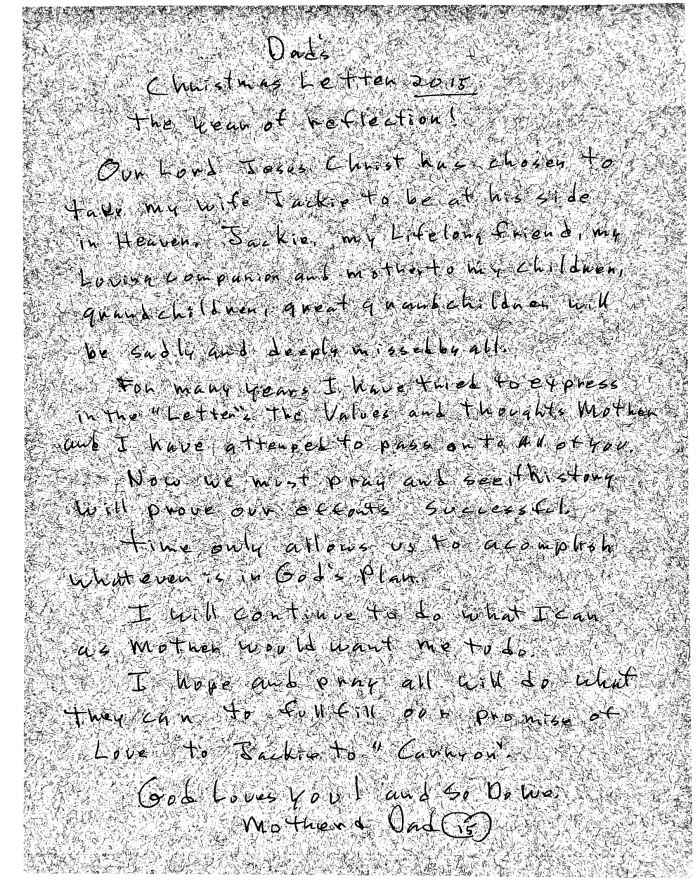 Dad's
Christmas Letter 2015
The year of reflection!
Our Lord Jesus Christ has chosen to
take my wife Jackie to be at his side
in Heaven. Jackie, my Lifelong friend, my
Loving companion and mother to my children,
grandchildren, great grandchildren will
be sadly and deeply missed by all.
For many years I have tried to express
in the "Letter's" The Values and Thoughts Mother
and I have attemped to pass on to All of you.
Now we must pray and see if history
will prove our efforts successful.
Time only allows us to acomplish
whatever is in God's Plan.
I will continue to do what I can
as Mother would want me to do.
I hope and pray all will do what
they can to fullfill our promise of
Love to Jackie to "Carryon".
God Loves you! and so Do we.
Mother & Dad 15